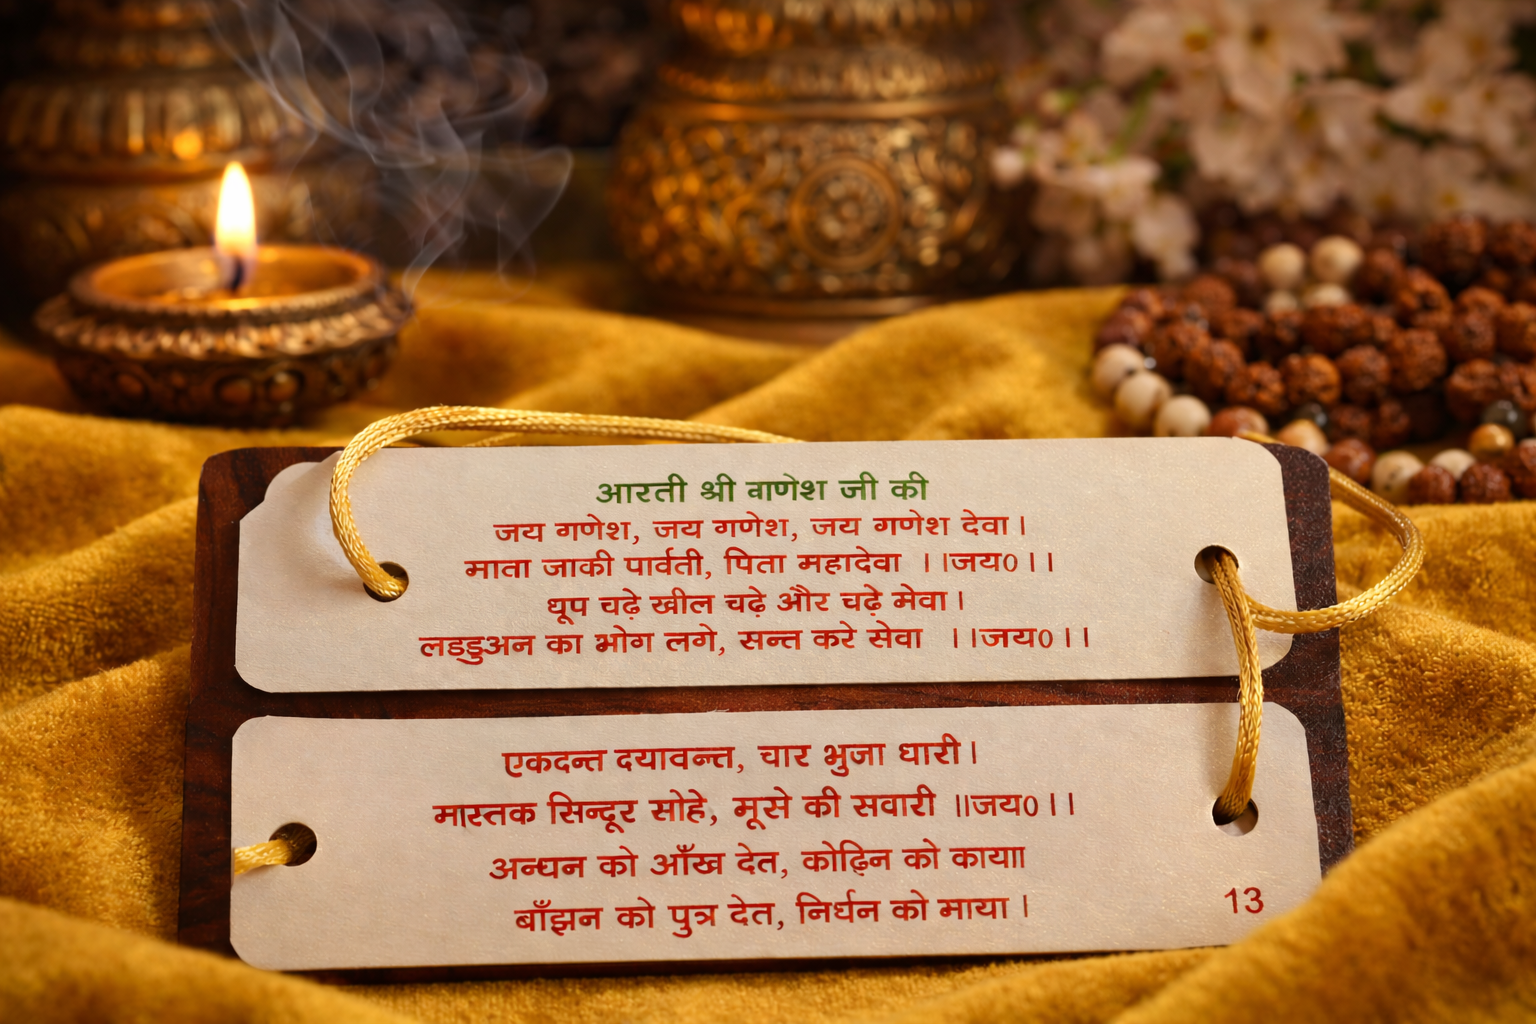 आरती श्री वाणेश जी की
जय गणेश, जय गणेश, जय गणेश देवा।
माता जाकी पार्वती, पिता महादेवा ।।जय०।।
धूप चढ़े खील चढ़े और चढ़े मेवा।
लडडुअन का भोग लगे, सन्त करे सेवा ।।जय०।।
एकदन्त दयावन्त, चार भुजा धारी।
मास्तक सिन्दूर सोहे, मूसे की सवारी ॥जय०।।
अन्धन को आँख देत, कोढ़िन को काया।
बाँझन को पुत्र देत, निर्धन को माया।
13